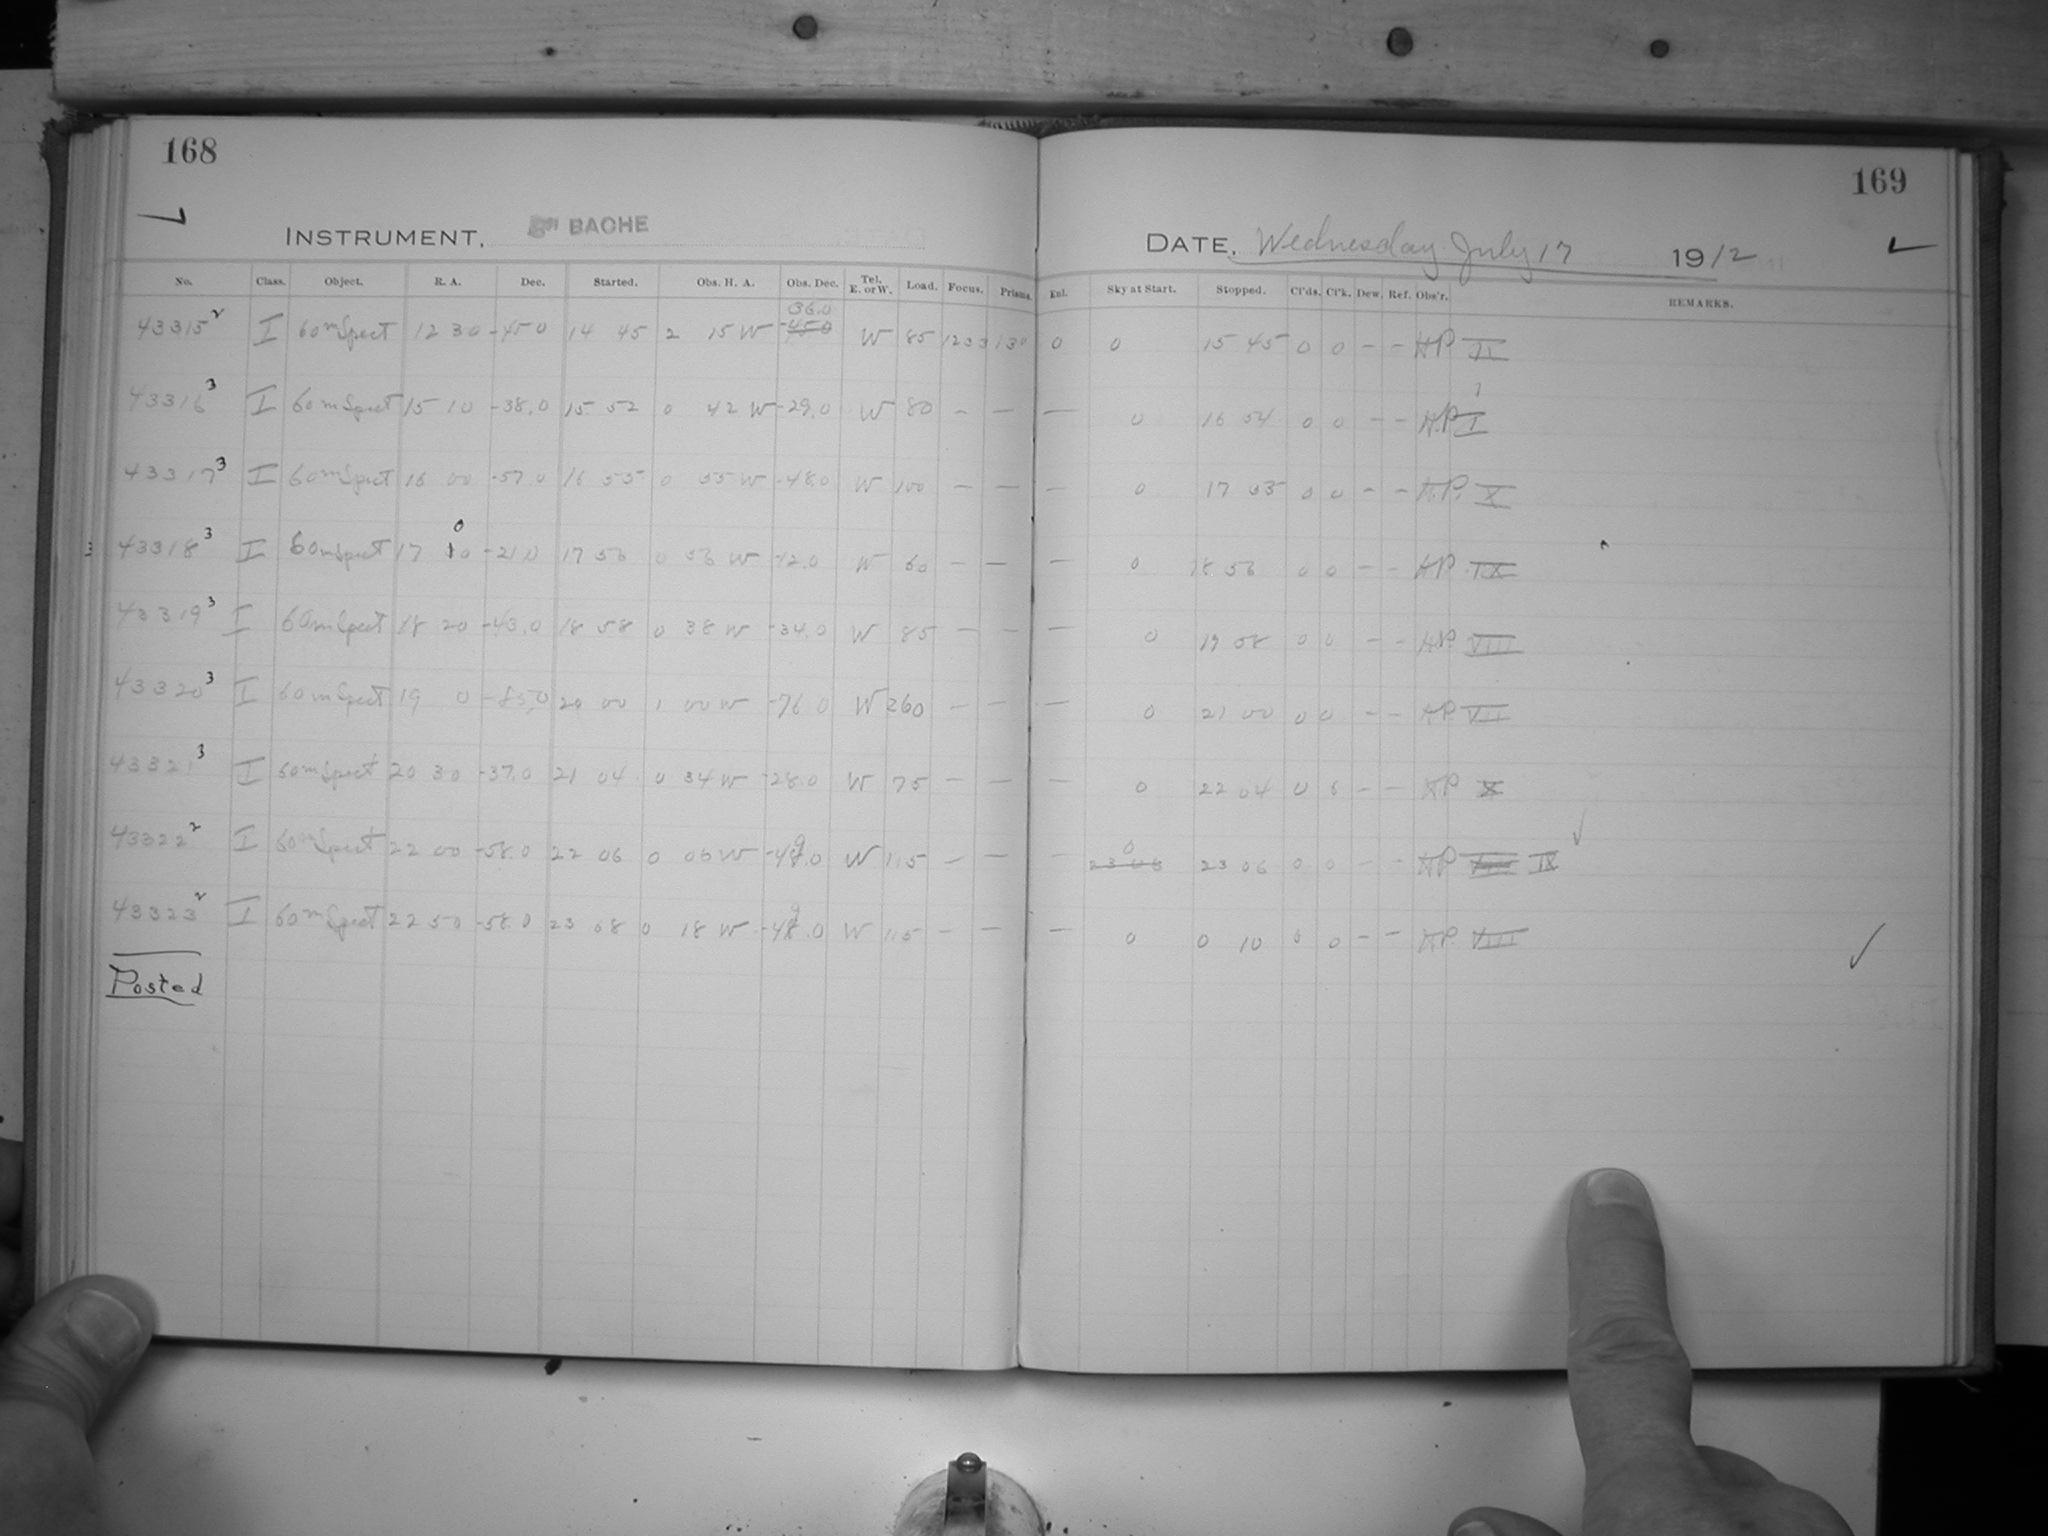 168
INSTRUMENT, BACHE
No. Class. Object. R. A. Dec. Started. Obs. H. A. Obs. Dec. Tel. E. or W. Load. Focus. Prisms.
36.0
43315 2 I 60m Spect 12 30 -45 0 14 45 2 15 W -45 0 W 85 1233 130
43316 3 I 60m Spect 15 10 -38.0 15 52 0 42 W -29.0 W 80 - - 
43317 3 I 60m Spect 16 00 -57 0 16 55 0 55 W -48.0 W 100 - -
0
43318 3 I 60m Spect 17 10 -21.0 17 56 0 56 W -12.0 W 60 - -
43319 3 I 60m Spect 18 20 -43.0 18 58 0 38 W -34.0 W 85 - -
43320 3 I 60m Spect 19 0 -85.0 20 00 1 00 W -76 0 W 260 - -
43321 3 I 60m Spect 20 30 -37.0 21 04 0 34 W -28.0 W 75 - -
43322 2 I 60m Spect 22 00 -58.0 22 06 0 06 W -49.0 W 115 - -
43323 2 I 60m Spect 22 50 -58.0 23 08 0 18 W -49.0 W 115 - -
Posted
169
DATE, Wednesday July 17 1912
Enl. Sky at Start. Stopped. Cl'ds. Cl'k. Dew. Ref. Obs'r. REMARKS.
0 0 15 45 0 0 - - HP
- 0 16 54 0 0 - - H.P. I
- 0 17 55 0 0 - - H.P. X
- 0 18 56 0 0 - - HP IX
- 0 19 58 0 0 - - HP VIII
- 0 21 00 0 0 - - HP VII
- 0 22 04 0 0 - - HP X
0
- 23 06 23 06 0 0 - - HP IX
- 0 0 10 0 0 - - HP VIII